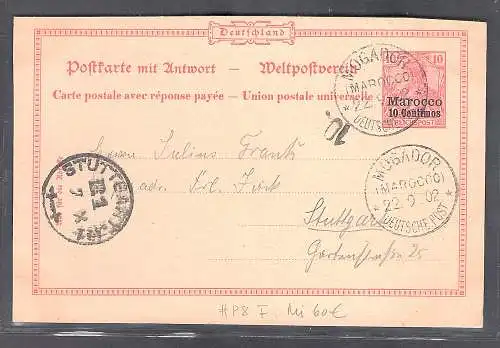 Deutschland
Postkarte mit Antwort — Weltpostverein
Carte postale avec réponse payée — Union postale universelle
10
Marocco
10 Centimos
REICHSPOST
MOGADOR
(MAROCCO)
22 9 02
* DEUTSCHE POST *
10.
MOGADOR
(MAROCCO)
22 9 02
* DEUTSCHE POST *
Herrn Julius Frantz
adr.
Stuttgart
Gartenstraße 25
STUTTGART
#P8 F. Mi 60€